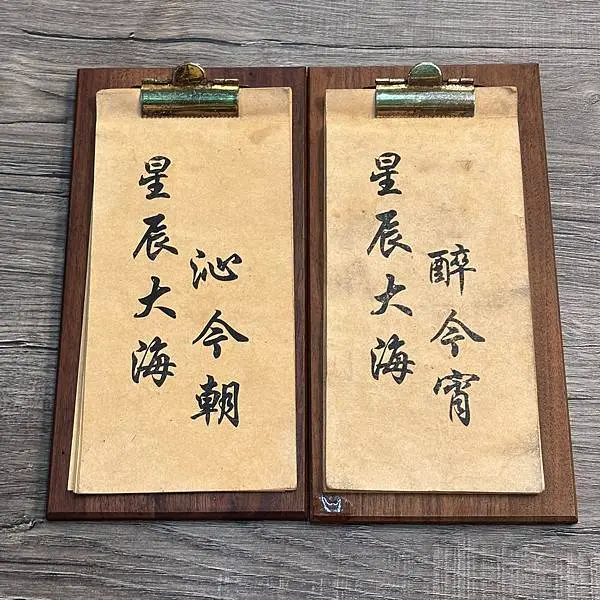 星辰大海
沁今朝
星辰大海
醉今宵